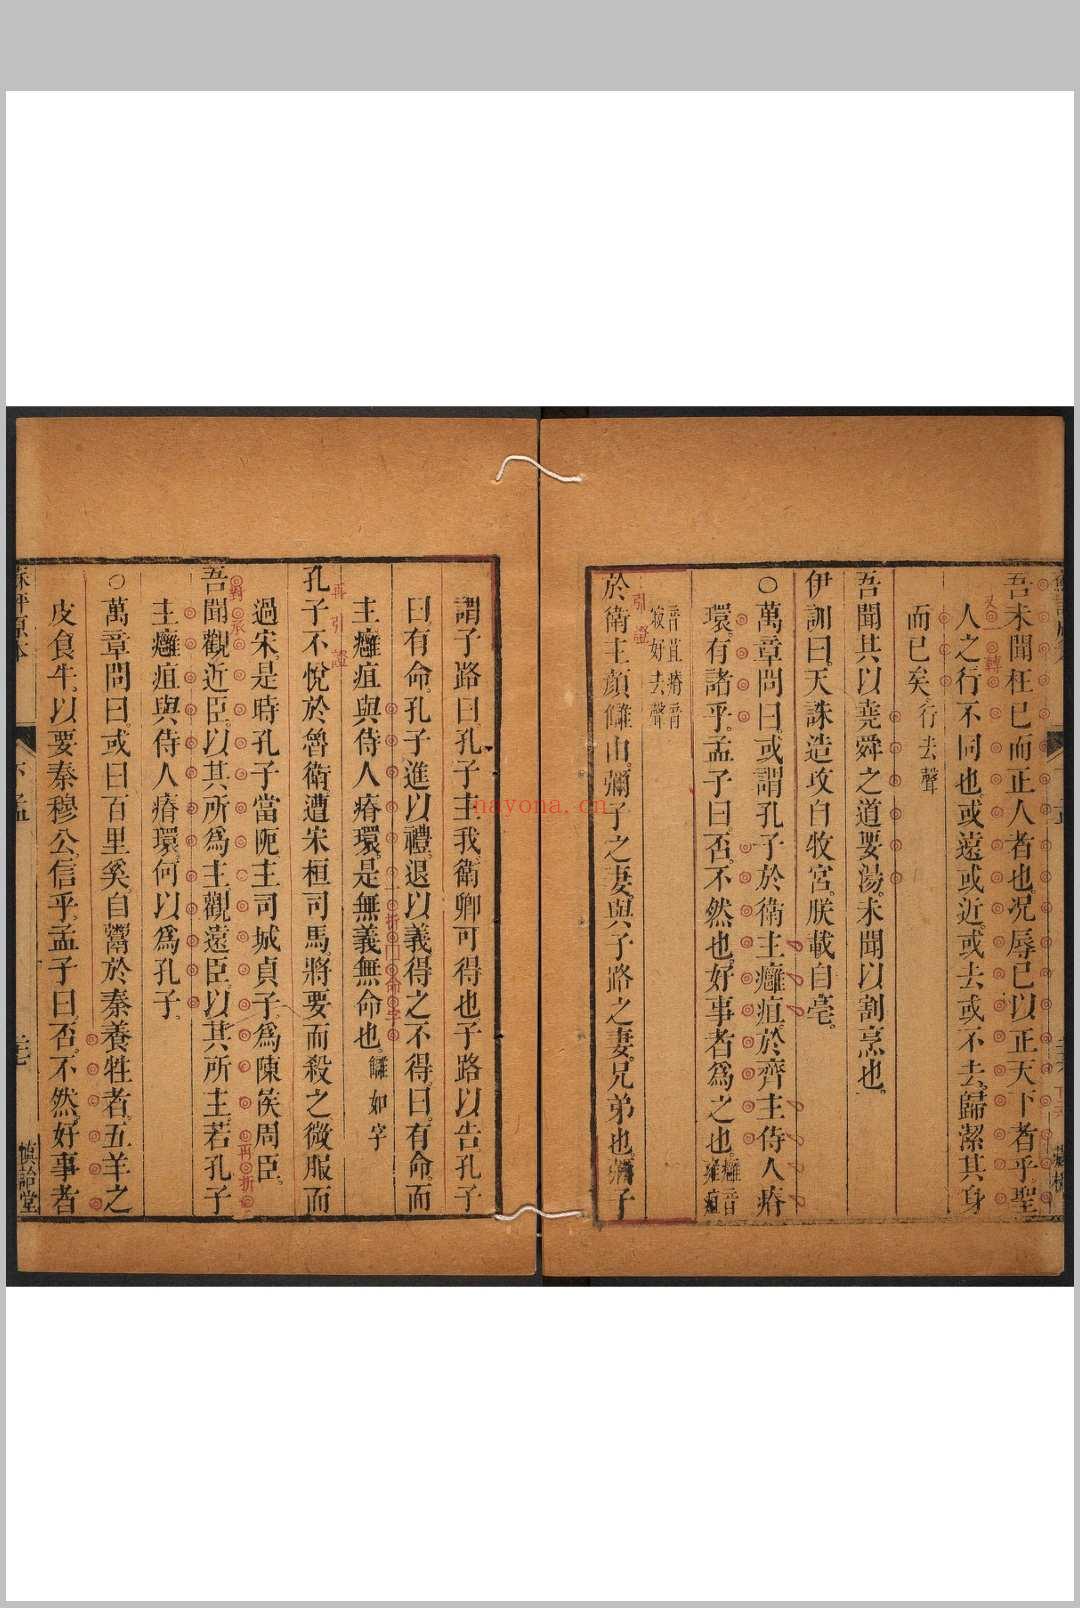 吾未聞枉已而正人者也。况辱已以正天下者乎。聖
又一轉
人之行不同也。或遠或近。或去或不去。歸潔其身
而已矣。行去聲
吾聞其以堯舜之道要湯。未聞以割烹也。
伊訓曰。天誅造攻自牧宮。朕載自亳。
○萬章問曰。或謂孔子於衛主癰疽。於齊主侍人瘠
環。有諸乎。孟子曰。否。不然也。好事者爲之也。癰音雍疽
音苴瘠音寂好去聲
引證
於衛主顏讎由。彌子之妻。與子路之妻。兄弟也。彌子
謂子路曰。孔子主我。衛卿可得也。子路以告。孔子
曰。有命。孔子進以禮。退以義。得之不得。曰。有命。而
一折
命字
主癰疽與侍人瘠環。是無義無命也。讎如字
再引證
孔子不悅於魯衛。遭宋桓司馬。將要而殺之。微服而
過宋。是時孔子當阨。主司城貞子。爲陳侯周臣。
再折
吾聞觀近臣。以其所爲主。觀遠臣。以其所主。若孔子
主癰疽與侍人瘠環。何以爲孔子。
○萬章問曰。或曰。百里奚。自鬻於秦養牲者。五羊之
皮食牛。以要秦穆公。信乎。孟子曰。否。不然。好事者
蘇評原本
下孟
慎詒堂
nayona.cn